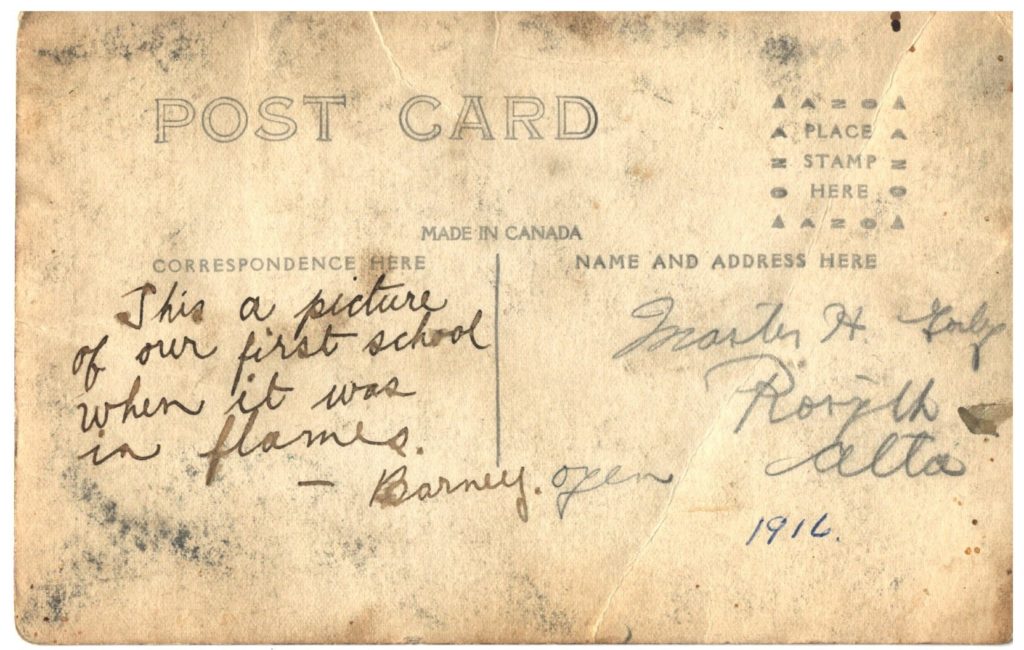 POST CARD
AZO
PLACE
STAMP
HERE
AZO
MADE IN CANADA
CORRESPONDENCE HERE
NAME AND ADDRESS HERE
This a picture
of our first school
when it was
in flames.
— Barney.
Master H.
Alta